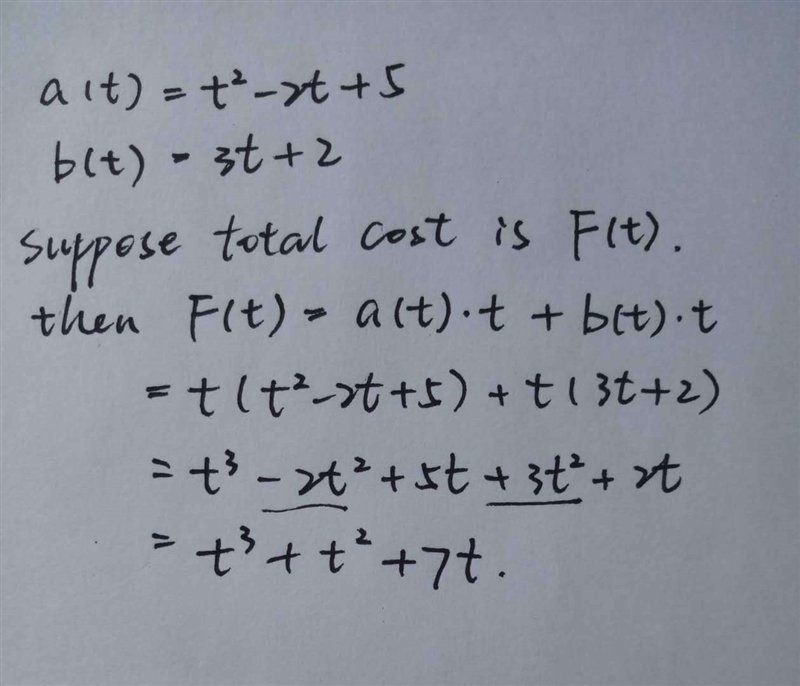 a(t) = t² - 2t + 5
b(t) = 3t + 2
suppose total cost is F(t).
then F(t) = a(t)·t + b(t)·t
= t(t² - 2t + 5) + t(3t + 2)
= t³ - 2t² + 5t + 3t² + 2t
= t³ + t² + 7t.